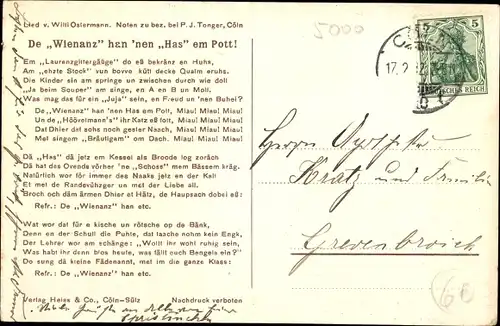 Lied v. Willi Ostermann. Noten zu bez. bei P. J. Tonger, Cöln
De „Wienanz" han 'nen „Has" em Pott!
Em „Laurenzgittergäßge" do eß bekränz en Huhn,
Am „ehzte Stock" vun bovve kütt decke Qualm eruhs.
Die Kinder ein am springe un zwischen durch wie doll
„Ja beim Souper" am singe, en A en B un Moll.
Was mag das für ein „Juja" sein, en Freud un 'nen Buhei?
De „Wienanz" han 'nen Has em Pott, Miau! Miau! Miau!
Un de „Höövelmann's" ihr Katz eß fott, Miau! Miau! Miau!
Dat Dhier dat sohs noch gester Naach, Miau! Miau! Miau!
Mel singem „Bräutigam" om Dach. Miau! Miau! Miau!
Dä „Has" dä jetz em Kessel als Broode log zoräch
Dä hat des Ovends vörher 'ne „Schoss" mem Bässem kräg.
Natürlich wor för immer des Naaks jetz en der Kall
Et met de Randevützger un met der Liebe all.
Broch och däm ärmen Dhier et Hätz, de Haupsach dobei eß:
Refr.: De „Wienanz" han etc.
Wat wor dat für e kische un rötsche op de Bänk,
Denn en der Schull die Puhte, dat laache nohm kein Engk,
Der Lehrer wor am schänge: „Wollt ihr wohl ruhig sein,
Was habt ihr denn blos heute, was fällt euch Bengels ein?"
Do sung dä kleine Fädenannt, met im die ganze Klass:
Refr.: De „Wienanz" han etc.
Verlag Heiss & Co., Cöln-Sülz Nachdruck verboten
5000
5
17.2.
DEUTSCHES REICH
Herrn Apotheker
Kratz und Familie
Grevenbroich
60